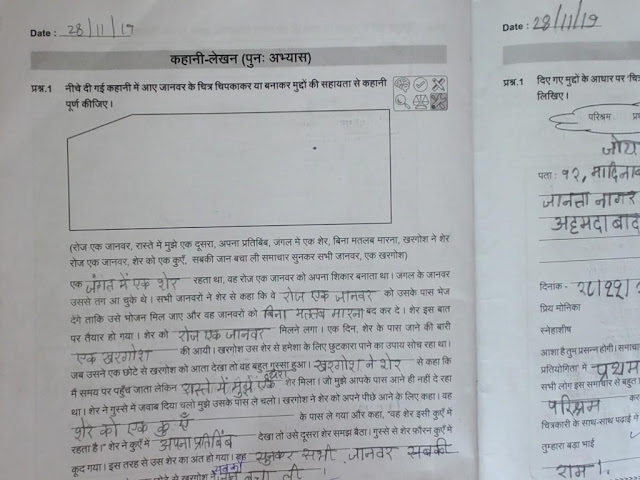 Date : 28/11/19
कहानी-लेखन (पुनः अभ्यास)
प्रश्न.1 नीचे दी गई कहानी में आए जानवर के चित्र चिपकाकर या बनाकर मुद्दों की सहायता से कहानी
पूर्ण कीजिए।
(रोज एक जानवर, रास्ते में मुझे एक दूसरा, अपना प्रतिबिंब, जंगल में एक शेर, बिना मतलब मारना, खरगोश ने शेर
रोज एक जानवर, शेर को एक कुएँ, सबकी जान बचा ली समाचार सुनकर सभी जानवर, एक खरगोश)
एक जंगल में एक शेर रहता था, वह रोज़ एक जानवर को अपना शिकार बनाता था। जंगल के जानवर
उससे तंग आ चुके थे। सभी जानवरों ने शेर से कहा कि वे रोज एक जानवर को उसके पास भेज
देंगे ताकि उसे भोजन मिल जाए और वह जानवरों को बिना मतलब मारना बंद कर दे। शेर इस बात
पर तैयार हो गया। शेर को रोज एक जानवर मिलने लगा। एक दिन, शेर के पास जाने की बारी
एक खरगोश की आयी। खरगोश उस शेर से हमेशा के लिए छुटकारा पाने का उपाय सोच रहा था।
जब उसने एक छोटे से खरगोश को आता देखा तो वह बहुत गुस्सा हुआ। खरगोश ने शेर से कहा कि
मैं समय पर पहुँच जाता लेकिन रास्ते में मुझे एक दूसरा शेर मिला। जो मुझे आपके पास आने ही नहीं दे रहा
था। शेर ने गुस्से में जवाब दिया चलो मुझे उसके पास ले चलो। खरगोश ने शेर को अपने पीछे आने के लिए कहा। वह
शेर को एक कुएँ के पास ले गया और कहा, "वह शेर इसी कुएँ में
रहता है।" शेर ने कुएँ में अपना प्रतिबिंब देखा तो उसे दूसरा शेर समझ बैठा। गुस्से से शेर फ़ौरन कुएँ में
कूद गया। इस तरह से उस शेर का अंत हो गया। सुनकर सभी जानवर सबकी
खरगोश ने सबकी जान बचा ली।
Date : 28/11/19
प्रश्न.1 दिए गए मुद्दों के आधार पर
लिखिए।
परिश्रम
पता : १२,
जानता नागर
अहमदाबाद
दिनांक -
प्रिय मोनिका
स्नेहाशीष
आशा है तुम प्रसन्न होगी।
प्रतियोगिता में प्रथम
सभी लोग इस समाचार से बहुत
परिश्रम
चित्रकारी के साथ-साथ पढ़ाई में
तुम्हारा बड़ा भाई
राम।